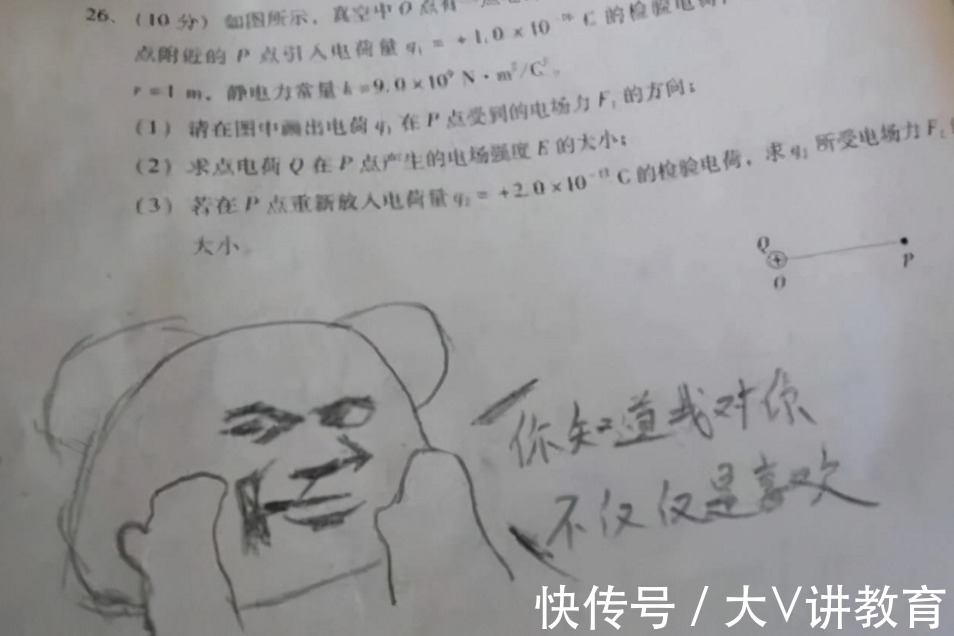 26. (10 分) 如图所示, 真空中 O 点有一点电
点附近的 P 点引入电荷量 q₁ = +1.0×10 C 的检验电荷,
r=1 m, 静电力常量 k=9.0×10⁹ N·m²/C²。
(1) 请在图中画出电荷 q₁ 在 P 点受到的电场力 F₁ 的方向;
(2) 求点电荷 Q 在 P 点产生的电场强度 E 的大小;
(3) 若在 P 点重新放入电荷量 q₂ = +2.0×10 C 的检验电荷, 求 q₂ 所受电场力 F₂
大小。
Q
+
O
P
你知道我对你
不仅仅是喜欢
快传号 / 大V讲教育